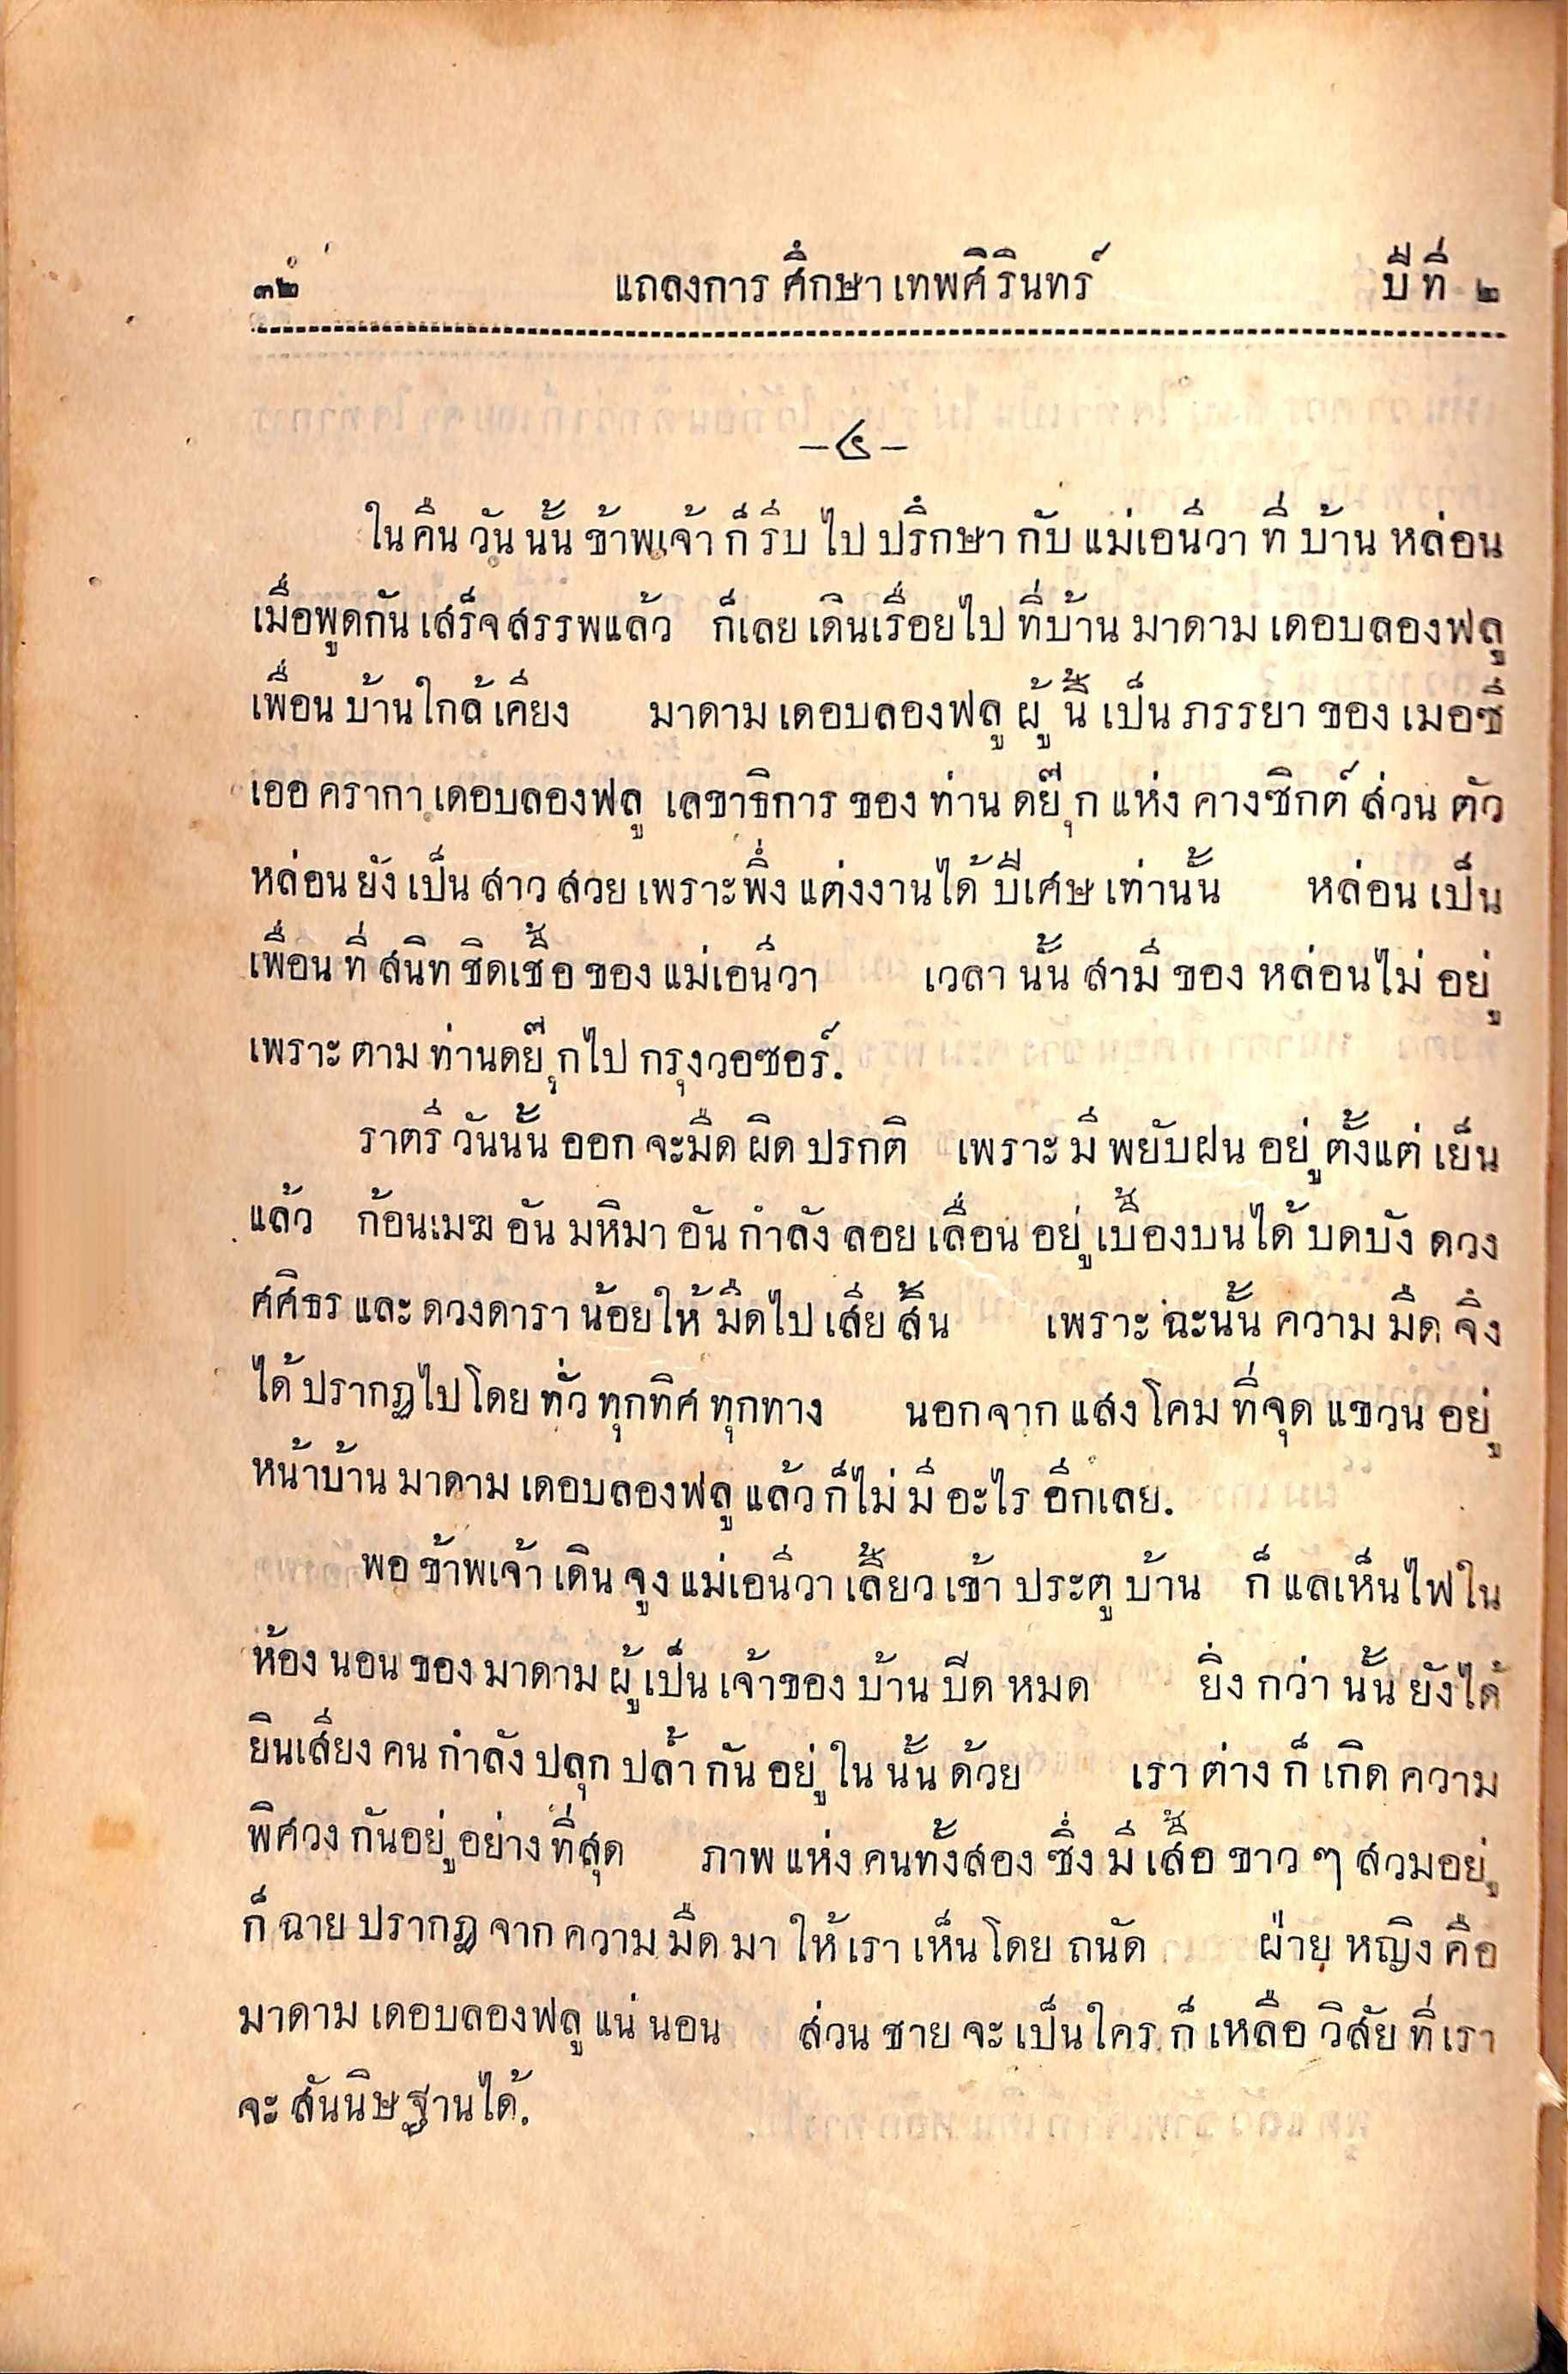 ๓๒ แถลงการศึกษาเทพศิรินทร์ ปีที่ ๒
–๔–
ในคืนวันนั้นข้าพเจ้าก็รีบไปปรึกษากับแม่เอนีวาที่บ้านหล่อน
เมื่อพูดกันเสร็จสรรพแล้ว ก็เลยเดินเรื่อยไปที่บ้านมาดามเดอบลองฟลู
เพื่อนบ้านใกล้เคียง มาดามเดอบลองฟลูผู้นี้เป็นภรรยาของเมอซี
เออครากาเดอบลองฟลู เลขาธิการของท่านดยุ๊กแห่งคางซิกต์ส่วนตัว
หล่อนยังเป็นสาวสวยเพราะพึ่งแต่งงานได้ปีเศษเท่านั้น หล่อนเป็น
เพื่อนที่สนิทชิดเชื้อของแม่เอนีวา เวลานั้นสามีของหล่อนไม่อยู่
เพราะตามท่านดยุ๊กไปกรุงวอซอร์.
ราตรีวันนั้นออกจะมืดผิดปรกติ เพราะมีพยับฝนอยู่ตั้งแต่เย็น
แล้ว ก้อนเมฆอันมหิมาอันกำลังลอยเลื่อนอยู่เบื้องบนได้บดบังดวง
ศศิธรและดวงดาราน้อยให้มืดไปเสียสิ้น เพราะฉะนั้นความมืดจึง
ได้ปรากฏไปโดยทั่วทุกทิศทุกทาง นอกจากแสงโคมที่จุดแขวนอยู่
หน้าบ้านมาดามเดอบลองฟลูแล้วก็ไม่มีอะไรอีกเลย.
พอข้าพเจ้าเดินจูงแม่เอนีวาเลี้ยวเข้าประตูบ้าน ก็แลเห็นไฟใน
ห้องนอนของมาดามผู้เป็นเจ้าของบ้านปิดหมด ยิ่งกว่านั้นยังได้
ยินเสียงคนกำลังปลุกปล้ำกันอยู่ในนั้นด้วย เราต่างก็เกิดความ
พิศวงกันอยู่อย่างที่สุด ภาพแห่งคนทั้งสองซึ่งมีเสื้อขาว ๆ สวมอยู่
ก็ฉายปรากฏจากความมืดมาให้เราเห็นโดยถนัด ฝ่ายหญิงคือ
มาดามเดอบลองฟลูแน่นอน ส่วนชายจะเป็นใครก็เหลือวิสัยที่เรา
จะสันนิษฐานได้.